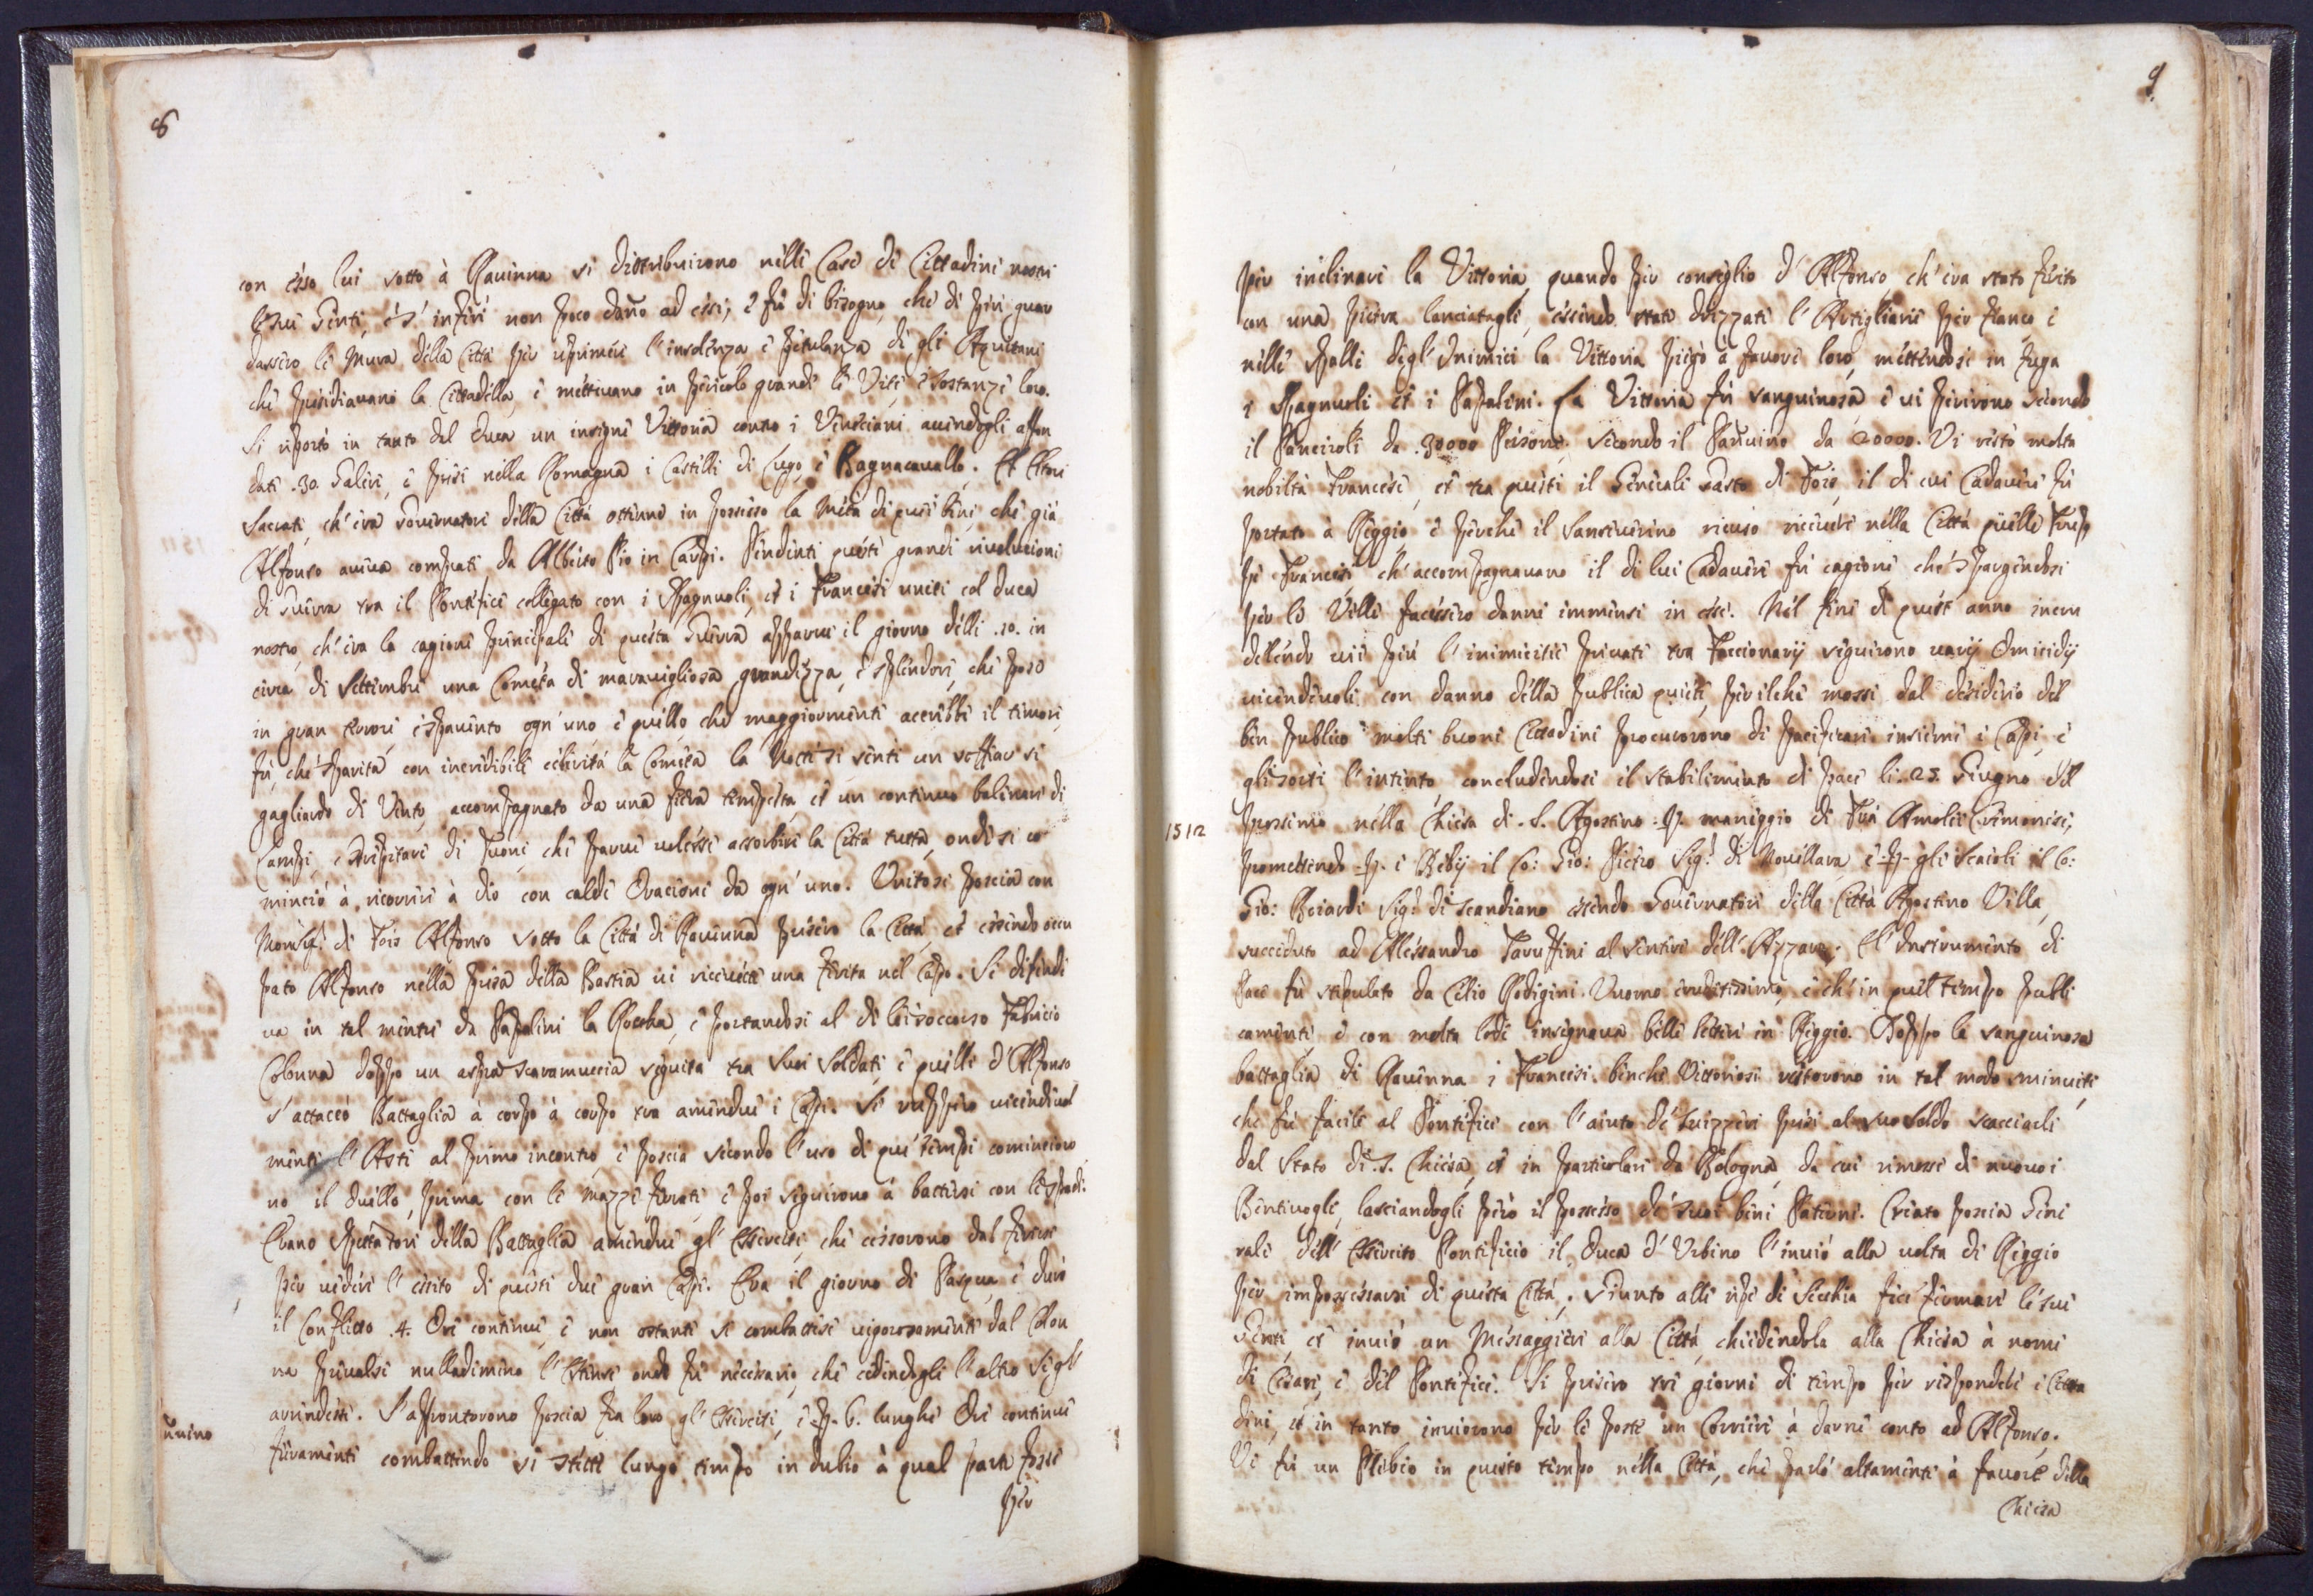 8
con esso lui sotto à Rauenna si distribuirono nelle Case di Cittadini nostri
le sue Genti, e s'inferì non poco daño ad essi, e fù di bisogno, che di più guar
dassero le Mura della Città per reprimere l'insolenza e petulanza di gli Aquitani
che presidiauano la Cittadella, e metteuano in pericolo grande le Vite, e sostanze loro.
Si riportò in tanto dal Duca un insigne Vittoria contro i Venetiani auendogli affon
dati .30. Galere, e presi nella Romagna i Castelli di Lugo, e Bagnacauallo. Et Ettore
Sacrati, ch'era Gouernatore della Città ottenne in possesso la Metà di quei beni, che già
Alfonso aueua comprati da Alberto Pio in Carpi. Pendenti queste grandi riuolucioni
di Guerra tra il Pontefice collegato con i Spagnuoli, et i Francesi uniti col Duca
nostro, ch'era la cagione principale di questa Guerra apparue il giorno delli .10. in
circa di Settembre una Cometa di marauigliosa grandezza, e splendore, che pose
in gran terrore, e spauento ogn'uno e quello, che maggiormente accrebbe il timore,
fù, che sparita con incredibile celerità la Cometa la Notte si sentì un soffiar sì
gagliardo di Vento, accompagnato da una fiera tempesta, et un continuo balenare di
Lampi, e strepitare di Tuoni, che parue uolesse assorbire la Città tutta, onde si co
minciò à ricorrere à Dio con calde Oracioni da ogn'uno. Unitosi poscia con
Monsig.r di Fois Alfonso sotto la Città di Rauenna presero la Città, et essendo occu
pato Alfonso nella presa della Bastia ui riceuette una ferita nel Capo. Si difende
ua in tal mentre da Papalini la Roccha, e portandosi al di lei soccorso Fabricio
Colonna doppo un aspra scaramuccia seguita tra suoi Soldati, e quelli d'Alfonso
s'attaccò Battaglia à corpo à corpo tra amendue i Capi. Si ruppero uicendeuol
mente l'Aste al primo incontro, e poscia secondo l'uso di que' tempi cominciaro
no il duello, prima con le mazze ferrate, e poi seguirono à battersi con le spade.
Erano Spettatori della Battaglia amendue gl'Eserciti, che cessorono dal ferirsi
per uedere l'esito di questi due gran Capi. Era il giorno di Pasqua, e durò
il Conflitto .4. Ore continue, e non ostante si combattesse uigorosamente dal Colon
na preualse nulladimeno l'Estense onde fù necessario, che cedendogli l'altro se gl'
arrendesse. S'affrontorono poscia fra loro gl'Eserciti, e p. 6. lunghe Ore continue
fieramente combattendo si stette lungo tempo in dubio à qual parte fosse
per
9
per inclinare la Vittoria, quando per consiglio d'Alfonso, ch'era stato ferito
con una pietra lanciatagli, essendo state drizzate l'Artiglierie per fianco e
nelle Spalle degl'Inimici la Vittoria piegò à fauore loro, mettendosi in fuga
i Spagnuoli et i Papalini. La Vittoria fù sanguinosa e ui perirono secondo
il Panciroli da .30000 Persone, secondo il Pañuino da 20000. Vi restò molta
nobiltà Francese, et tra questi il Generale Gasto di Fois, il di cui Cadauere fù
portato à Reggio e perche il Sanseuerino ricusò riceuere nella Città quelle Trup
pe Francesi ch'accompagnauano il di lui Cadauere fù cagione che spargendosi
per le Ville facessero danni immensi in esse. Nel fine di quest'anno incru
delendo uie più l'inimicitie priuate tra Faccionarij seguirono uarij Omicidij
uicendeuoli con danno della publica quiete, per il che mossi dal desiderio del
ben publico molti buoni Cittadini procurorono di pacificare insieme i Capi, e
gli sortì l'intento, concludendosi il stabilimento di pace li .25. Giugno del
1512 prossimo nella Chiesa di .S. Agostino .p. maneggio di Frà Amelio Cremonese,
promettendo .p. i Bebij il Co: Gio: Pietro Sig.r di Nouellara, e .p. gli Scaioli il Co:
Gio: Boiardi Sig.r di Scandiano essendo Gouernatore della Città Agostino Villa,
succeduto ad Alessandro Faruffini al sentire dell'Azzari. L'Instrumento di
Pace fù stipulato da Celio Rodigini. Vuomo eruditissimo, e ch'in quel tempo publi
camente, e con molta lode insegnaua belle lettere in Reggio. Doppo la sanguinosa
battaglia di Rauenna i Francesi, benche Vittoriosi restorono in tal modo sminuiti,
che fù facile al Pontefice con l'aiuto de' Suizzeri presi al suo Soldo scacciarli
dal Stato di .S. Chiesa, et in particolare da Bologna, da cui rimosse di nuouo i
Bentiuogli, lasciandogli però il possesso de' suoi beni Paterni. Creato poscia Gene
rale dell'Esercito Pontificio il Duca d'Urbino l'inuiò alla uolta di Reggio
per impossessarsi di questa Città. Giunto alle ripe di Secchia fece fermare le sue
Genti, et inuiò un Messaggiere alla Città, chiedendola alla Chiesa à nome
di Cesare, e del Pontefice. Si presero tre giorni di tempo per rispondere i Citta
dini, et in tanto inuiorono per le poste un Corriere à darne conto ad Alfonso.
Vi fù un Plebeo in questo tempo nella Città, che parlò altamente à fauore della
Chiesa